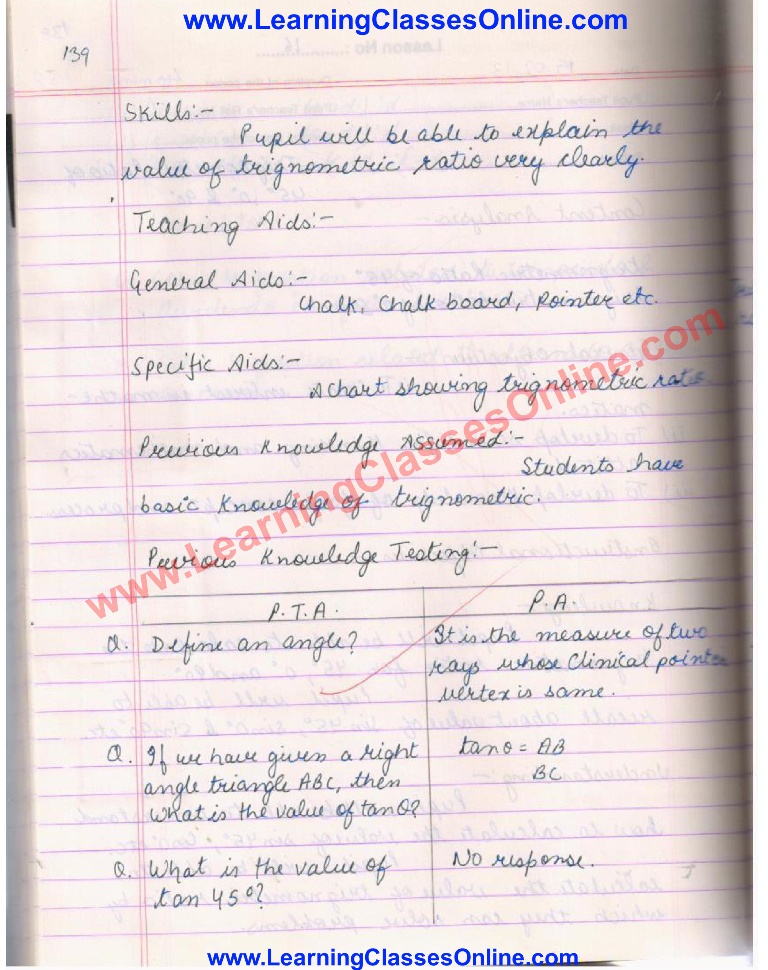 www.LearningClassesOnline.com
139
Skills:-
Pupil will be able to explain the
value of trignometric ratio very clearly.
Teaching Aids:-
General Aids:-
Chalk, Chalk board, Pointer etc.
Specific Aids:-
A chart showing trignometric ratio
Previous Knowledge Assumed:-
Students have
basic Knowledge of trignometric.
Pevious Knowledge Testing:-
www.LearningClassesOnline.com
P.T.A. P.A.
Q. Define an angle? It is the measure of two
rays whose Clinical pointer
vertex is same.
Q. If we have given a right tanθ = AB
angle triangle ABC, then BC
What is the value of tanθ?
Q. What is the value of No response.
tan 45°?
www.LearningClassesOnline.com